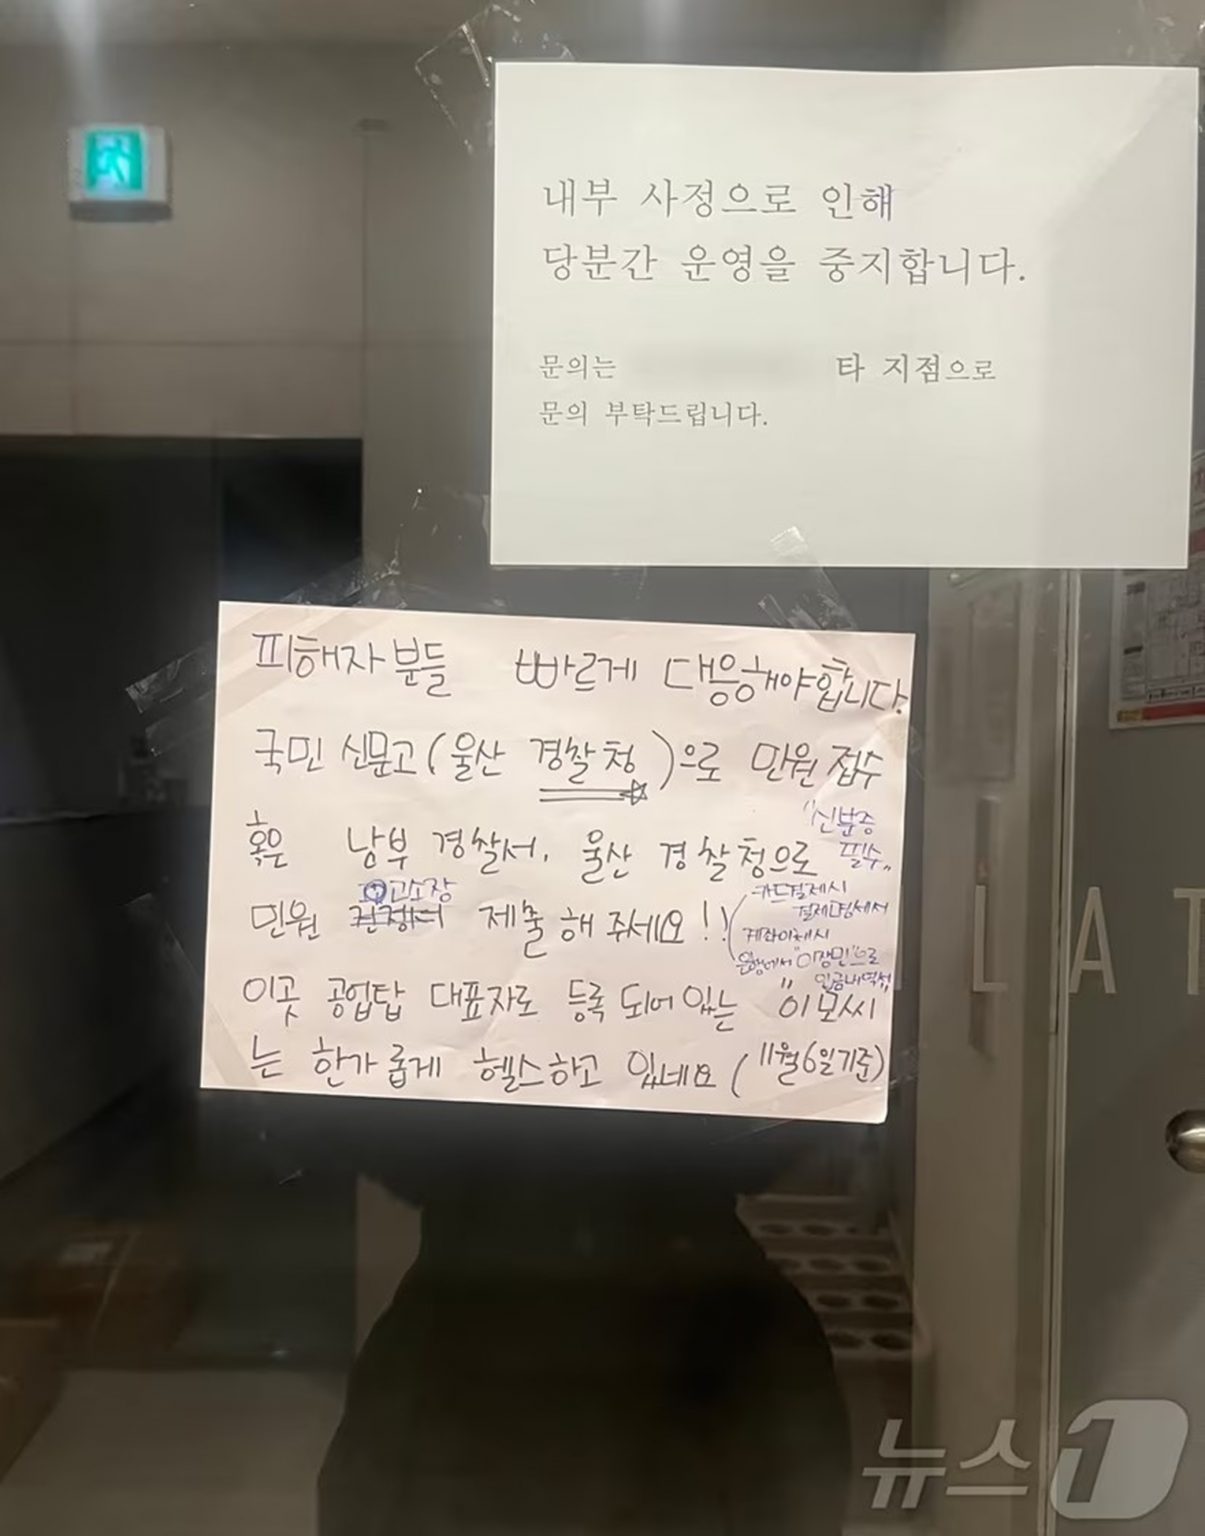 내부 사정으로 인해
당분간 운영을 중지합니다.
문의는 타 지점으로
문의 부탁드립니다.
피해자분들 빠르게 대응해야합니다.
국민 신문고(울산 경찰청)으로 민원 접수
혹은 남부 경찰서, 울산 경찰청으로
"신분증
필수"
고소장
민원 제출해 주세요!!
카드결제시
결제명세서
계좌이체시
은행에서 "이장민"으로
입금내역서
이곳 공업탑 대표자로 등록 되어 있는 "이모씨"
는 한가롭게 헬스하고 있네요 (11월 6일기준)
LAT
뉴스1